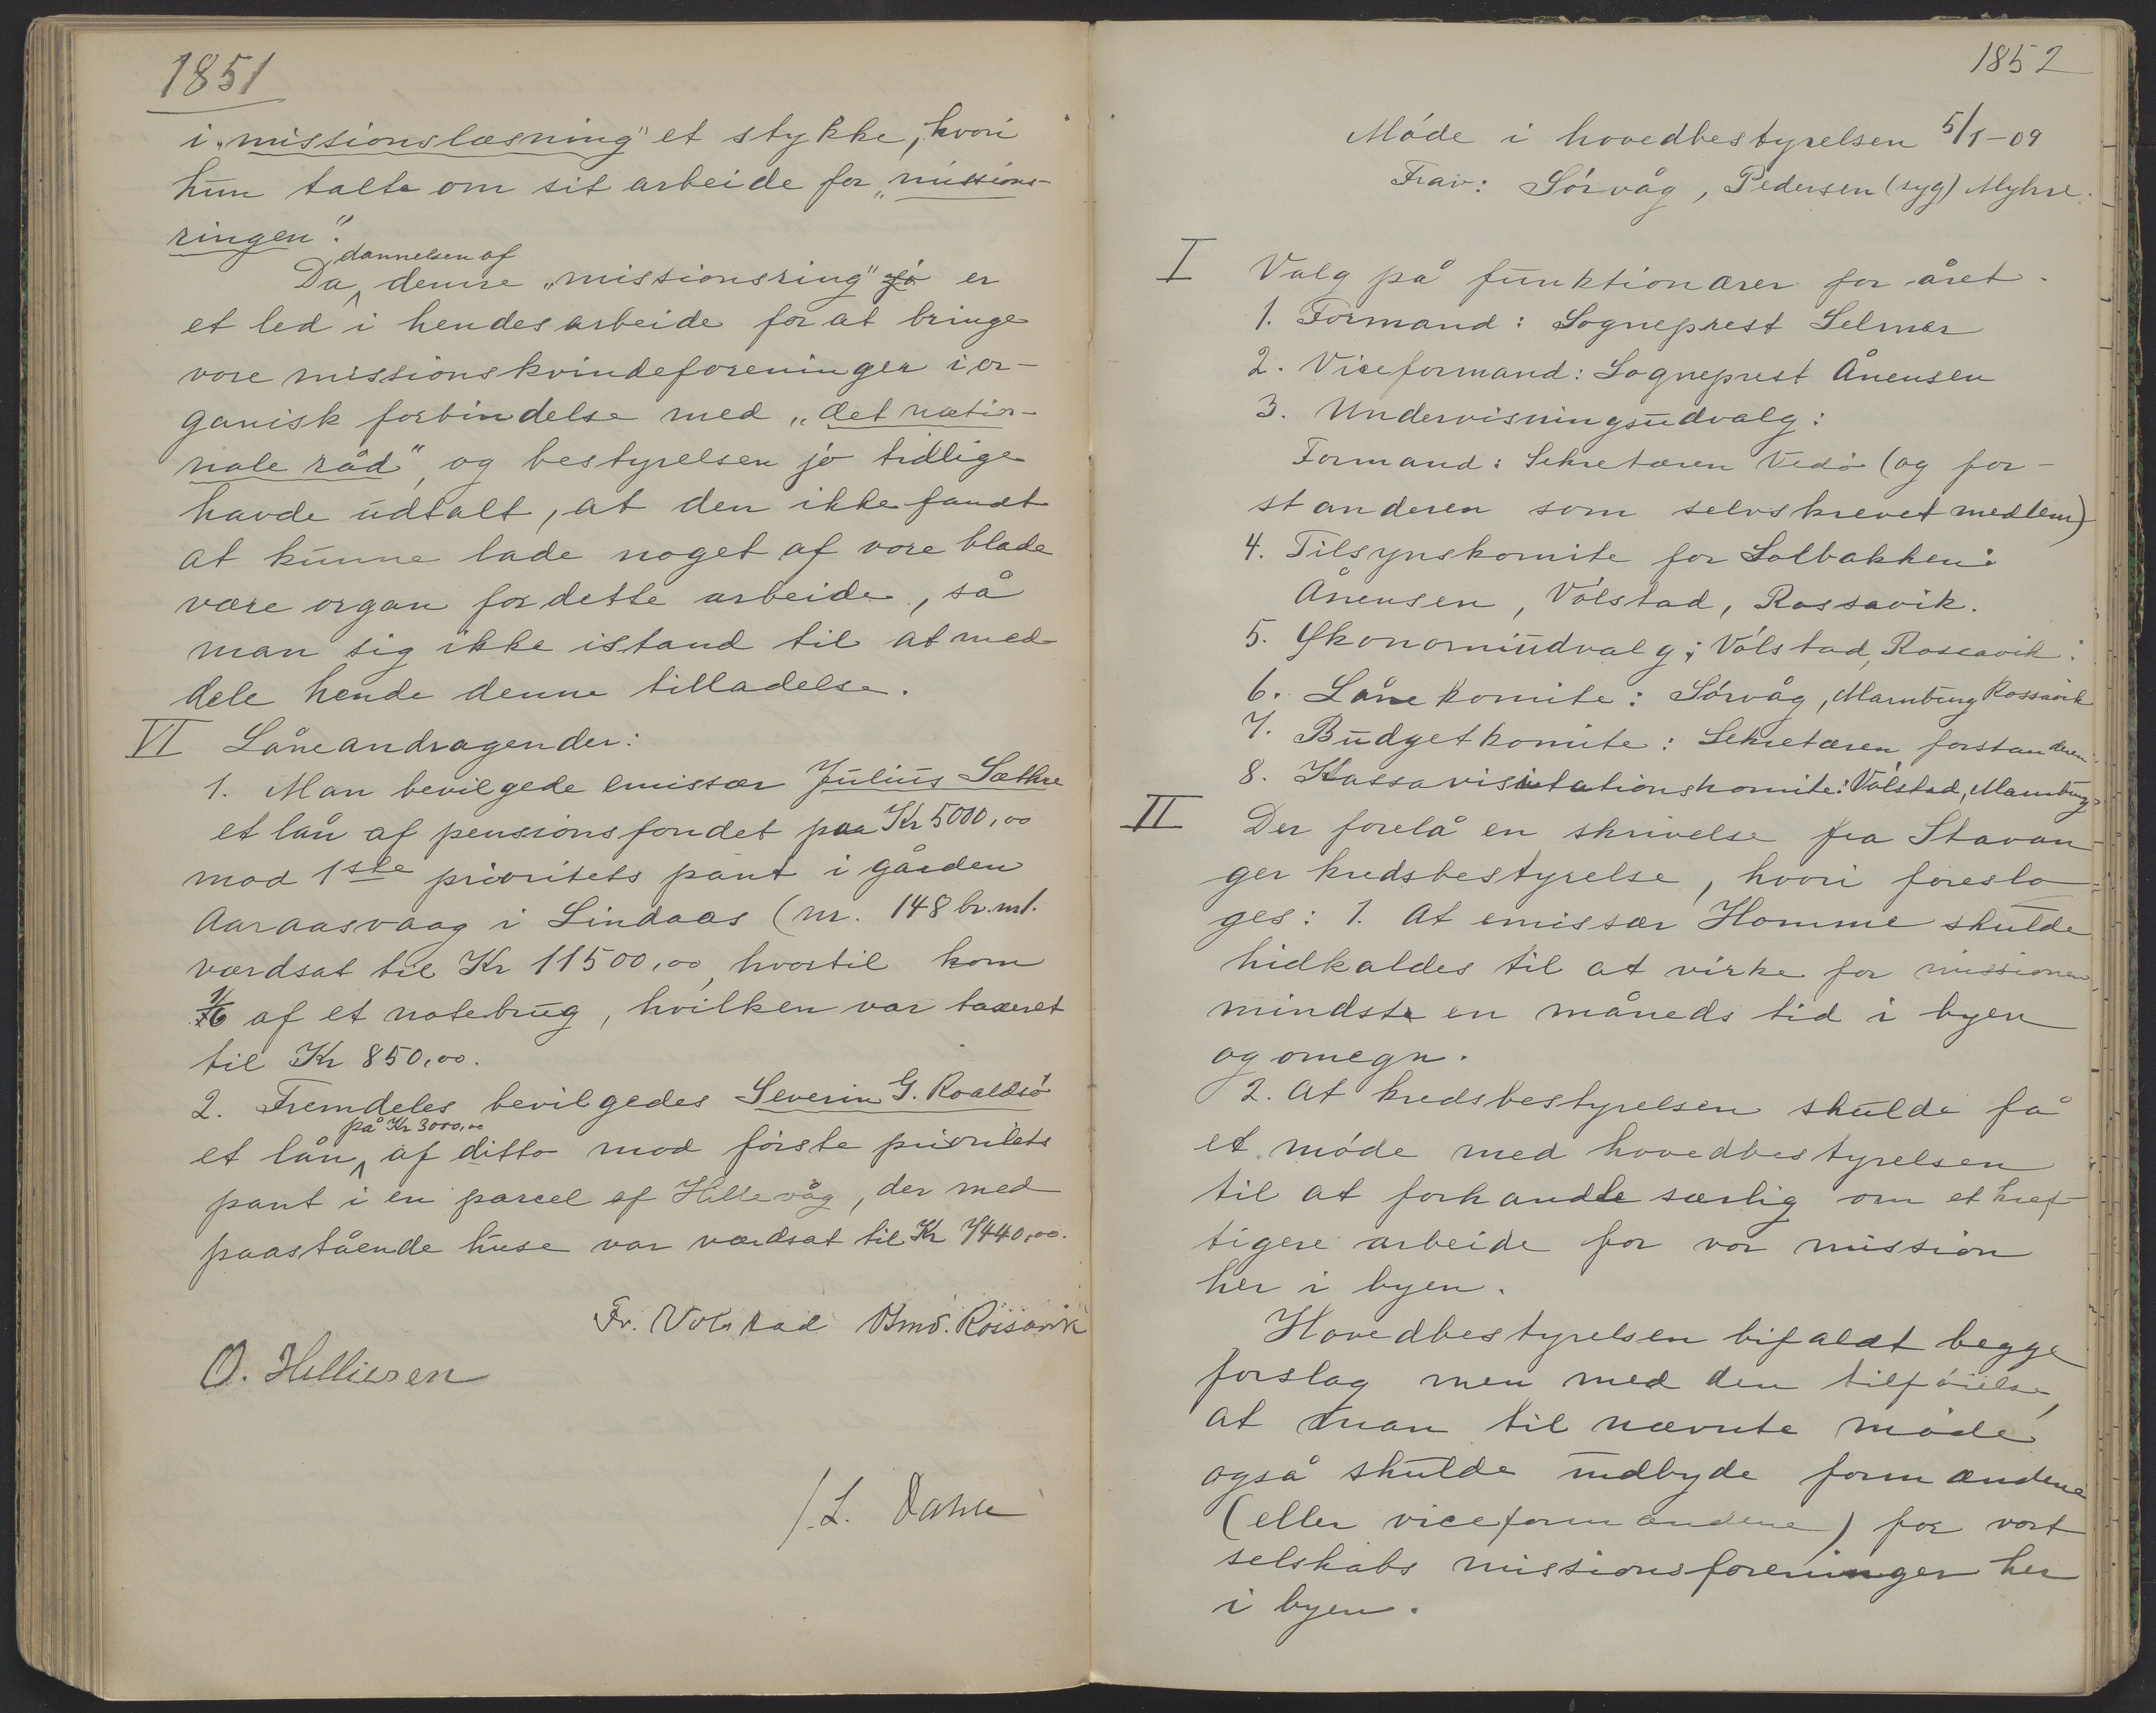 1851
i „missionslæsning" et stykke, hvori
hun talte om sit arbeide for „missions-
ringen".
dannelsen af
Da denne „missionsring" jo er
et led i hendes arbeide for at bringe
vore missionskvindeforeninger i or-
ganisk forbindelse med „det natio-
nale råd", og bestyrelsen jo tidlige
havde udtalt, at den ikke fandt
at kunne lade noget af vore blade
være organ for dette arbeide, så
man sig ikke istand til at med-
dele hende denne tilladelse.
VI Låneandragender:
1. Man bevilgede emissær Julius Sæthre
et lån af pensionsfondet paa Kr 5000,00
mod 1ste prioritets pant i gården
Aaraasvaag i Lindaas (nr. 148 br. nr 1.
værdsat til Kr 11500,00, hvortil kom
1/6 af et notebrug, hvilken var taxeret
til Kr 850,00.
2. Fremdeles bevilgedes Severin G. Roaldsö
på Kr 3000,00
et lån af ditto mod første prioritets
pant i en parcel af Hillevåg, der med
paastående huse var værdsat til Kr 7440,00.
Fr. Volstad Åmd. Rossavik
O. Helliesen
/. L. Dahle
1852
Möde i hovedbestyrelsen 5/1-09
Frav: Sörvåg, Pedersen (syg) Myhre.
I Valg på funktionærer for året.
1. Formand: Sogneprest Selmer
2. Viceformand: Sogneprest Ånensen
3. Undervisningsudvalg:
Formand: Sekretæren Vedö (og for-
standeren som selvskrevet medlem)
4. Tilsynskomite for Solbakken:
Ånensen, Vólstad, Rossavik.
5. Økonomiudvalg: Vólstad, Rossavik.
6. Lånekomite: Sörvåg, Marnburg Rossavik
7. Budgetkomite: Sekretæren forstanderen
8. Kassavisitationskomite: Vólstad, Marnburg
II Der forelå en skrivelse fra Stavan-
ger kredsbestyrelse, hvori foreslo-
ges: 1. At emissær Homme skulde
hidkaldes til at virke for missionen
mindste en måneds tid i byen
og omegn.
2. At kredsbestyrelsen skulde få
et möde med hovedbestyrelsen
til at forhandle særlig om et kræf-
tigere arbeide for vor mission
her i byen.
Hovedbestyrelsen bifaldt begge
forslag men med den tilföielse,
at man til nævnte möde
også skulde indbyde formændene
(eller viceformændene) for vort
selskabs missionsforeninger her
i byen.